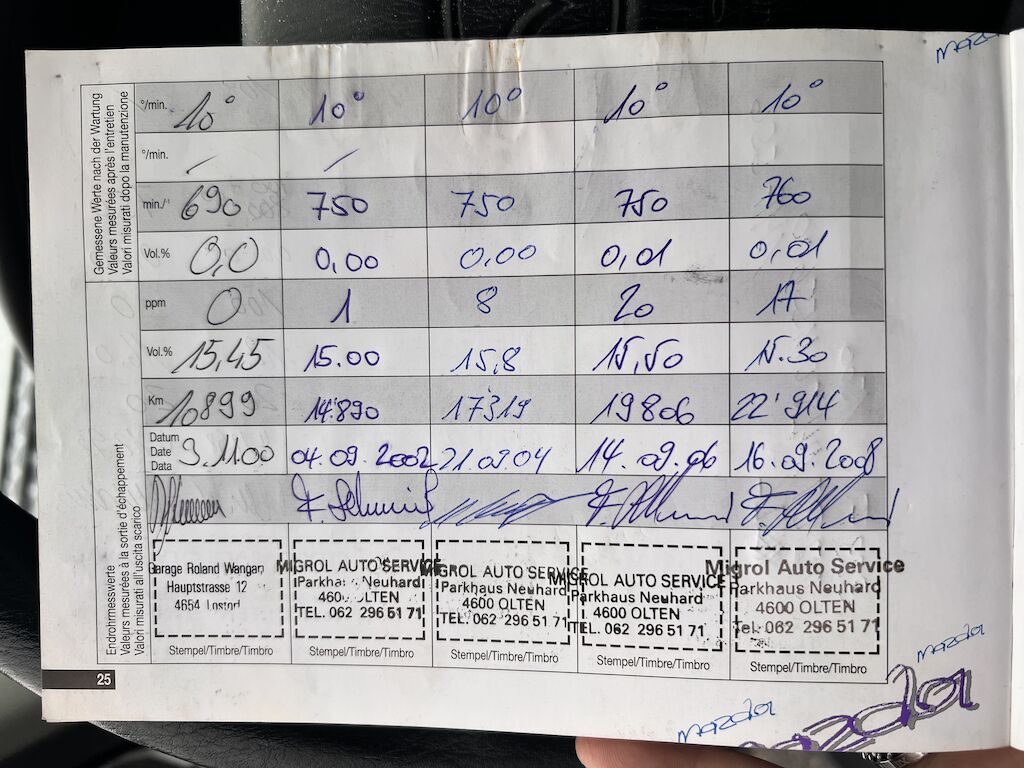 mazda
Gemessene Werte nach der Wartung
Valeurs mesurées après l'entretien
Valori misurati dopo la manutenzione
°/min. 10° 10° 10° 10° 10°
°/min. – –
min./⁻¹ 690 750 750 750 760
Vol.% 0,0 0,00 0,00 0,01 0,01
Endrohrmesswerte
Valeurs mesurées à la sortie d'échappement
Valori misurati all'uscita scarico
ppm 0 1 8 20 17
Vol.% 15,45 15.00 15,8 15,50 15.30
Km 10899 14'890 17'319 19806 22'914
Datum
Date
Data
9.11.00 04.09.2002 21.09.04 14.09.06 16.09.2008
Garage Roland Wangart
Hauptstrasse 12
4654 Lostorf
Stempel/Timbre/Timbro
MIGROL AUTO SERVICE
Parkhaus Neuhard
4600 OLTEN
TEL. 062 296 51 71
Stempel/Timbre/Timbro
MIGROL AUTO SERVICE
Parkhaus Neuhard
4600 OLTEN
TEL. 062 296 51 71
Stempel/Timbre/Timbro
MIGROL AUTO SERVICE
Parkhaus Neuhard
4600 OLTEN
TEL. 062 296 51 71
Stempel/Timbre/Timbro
Migrol Auto Service
Parkhaus Neuhard
4600 OLTEN
Tel. 062 296 51 71
Stempel/Timbre/Timbro
25
mazda
mazda
mazda